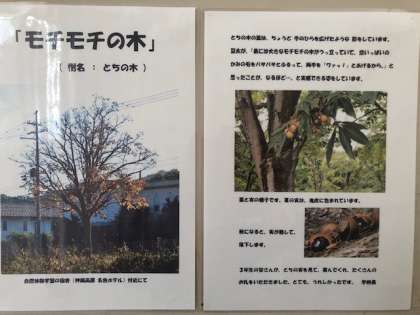 「モチモチの木」
（ 俗名 ： とちの木 ）
とちの木の葉は、ちょうど 手のひらを広げたような 形をしています。
豆太が、「表には大きなモチモチの木がつっ立っていて、空いっぱいの
かみの毛をバサバサとふるって、両手を「ワァッ！」とあげるから。」と
思ったことが、なるほど…。と実感できる姿をしています。
葉と実の様子です。茎の実は、
秋になると、実が熟して、
落下します。
３年生の皆さんが、とちの実を見て、喜んでくれ、たくさんの
お礼をいただきました。とても、うれしかったです。